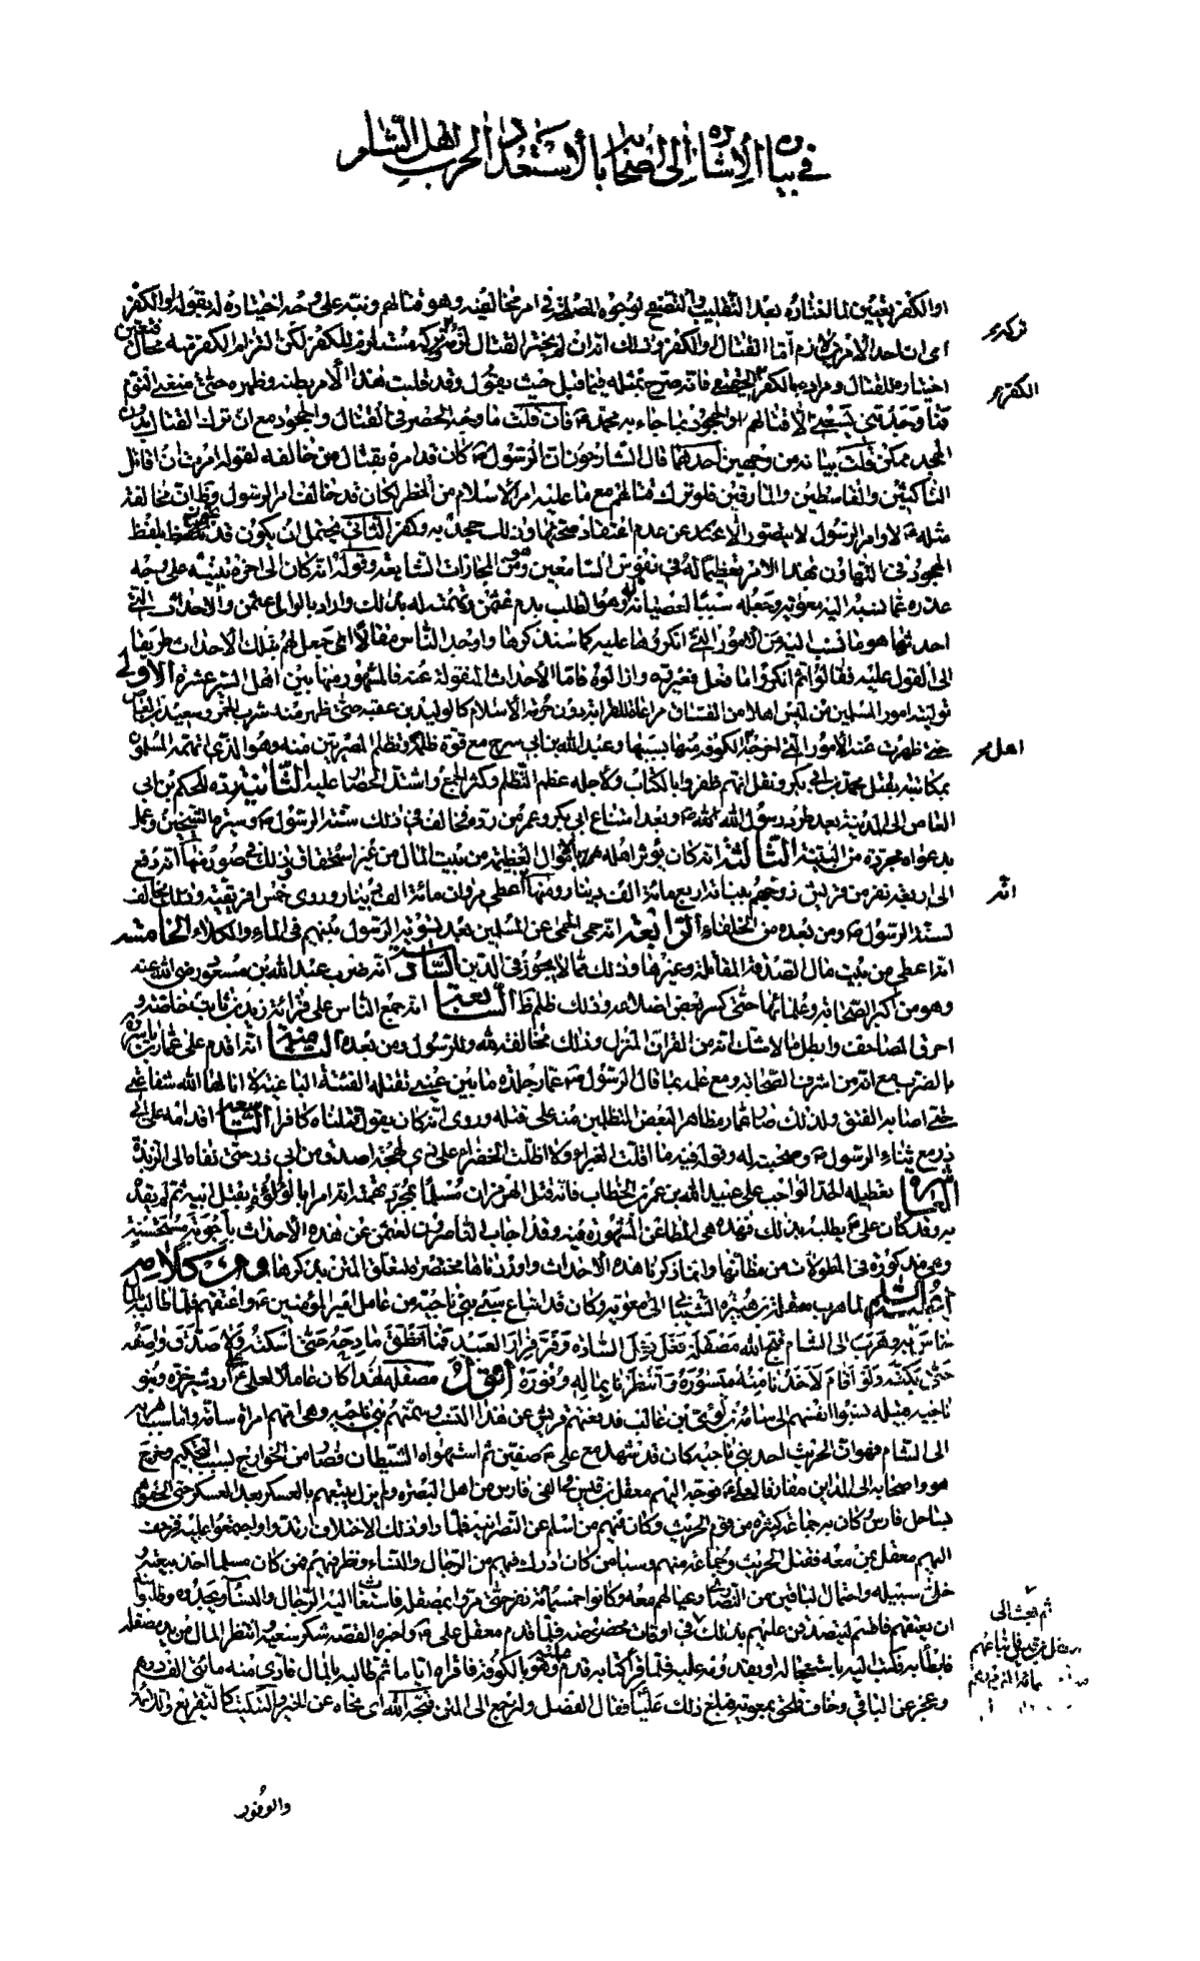 في بيان الإشارة إلى أصحابه بالاستعداد لحرب أهل الشام
او الكفر تعيين لما اختاره بعد التقليب والتصفح لوجوه المصلحة في امر مخالفيه وهو قتالهم ونبه على وجه اختياره له بقوله او الكفر
اى ان احد الامرين لازم اما القتال او الكفر وذلك انه ان لم يختر القتال تركه مستلزم للكفر لكن التزام الكفر منه محال فتعين
اختياره للقتال ومراده بالكفر الحقيقى فانه صرح بمثله فيما قبل حيث يقول وقد قلبت هذا الامر بطنه وظهره حتى منعنى النوم
فما وجدتنى يسعنى الا قتالهم او الجحود بما جاء به محمد فان قلت ما وجه الحصر فى القتال والجحود مع ان ترك القتال بدون
الجحد ممكن قلت بيانه من وجهين احدهما قال الشارحون ان الرسول كان قد امره بقتال من خالفه لقوله امرت ان اقاتل
الناكثين والقاسطين والمارقين فلو ترك قتالهم مع ما عليه امر الاسلام من الخطر لكان قد خالف امر الرسول وظ ان مخالفة
مثله لاوامر الرسول لا يتصور الا عن عدم اعتقاد صحتها وذلك جحد به وكفر الثانى يحتمل ان يكون قد تجوز بلفظ
الجحود فى التهاون بهذا الامر تعظيما له فى نفوس السامعين وهو من المجازات الشايعة وقوله انه كان الى اخره تنبيه على وجه
عذره عما نسبه اليه معويه وجعله سببا لعصيانه وهو الطلب بدم عثمن وتهمته له بذلك واراد بالوالى عثمن والاحداث التى
احدثها هو ما نسب اليه من الامور التى انكروها عليه كما سنذكرها واوجد الناس مقالا اى جعل لهم بتلك الاحداث طريقا
الى القول عليه فقالوا ثم انكروا ما فعل فغيروه وازالوه فاما الاحداث المنقولة عنه فالمشهور منها بين اهل السير عشرة الاولى
توليته امور المسلمين من ليس اهلا من الفساق مراعاة للقرابة دون حرمة الاسلام كالوليد بن عقبه حتى ظهر منه شرب الخمر وسعيد بن العاص
حتى ظهرت عنه الامور التى اخرجه اهل الكوفة منها بسببها وعبد الله بن ابى سرح مع قوة ظلمه وتظلم المصريين منه وهو الذى اتهمه المسلمون
بمكاتبته بقتل محمد بن ابى بكر ونقل انهم ظفروا بالكتاب ولاجله عظم التظلم وكثر الجمع واشتد الحصار عليه الثانية رده للحكم بن ابى
العاص الى المدينة بعد طرد رسول الله وبعد امتناع ابى بكر وعمر من رده فخالف فى ذلك سنة الرسول وسيرة الشيخين وعمل
بدعواه مجردة من البينة الثالثة انه كان يؤثر اهله بالاموال العظيمة من بيت المال من غير استحقاق وذلك فى صور منها انه دفع
الى اربعة نفر من قريش زوجهم بناته اربع مائة الف دينار ومنها انه اعطى مروان مائة الف دينار وروى خمس افريقية وذلك مخالف
لسنة الرسول ومن بعده من الخلفاء الرابعة انه حمى الحمى عن المسلمين بعد تسوية الرسول بينهم فى الماء والكلاء الخامسة
انه اعطى من بيت مال الصدقة المقاتلة وغيرها وذلك مما لا يجوز فى الدين السادسة انه ضرب عبد الله بن مسعود رضى الله عنه
وهو من اكبر الصحابة وعلمائها حتى كسر بعض اضلاعه وذلك ظلم ظ السابعة انه جمع الناس على قرائة زيد بن ثابت خاصة و
احرق المصاحف وابطل ما لا شك انه من القران المنزل وذلك مخالفة لله وللرسول ومن بعده الثامنة انه اقدم على عمار بن ياسر
بالضرب مع انه من اشرف الصحابة ومع علمه بما قال الرسول عمار جلدة ما بين عينى تقتله الفئة الباغية لا انالها الله شفاعتى
حتى اصابه الفتق ولذلك صار عمار مظاهرا لبعض المتظلمين منه على قتله وروى انه كان يقول قتلناه كافرا التاسعة اقدامه على ابى
ذر مع ثناء الرسول وصحبته له وقوله فيه ما اقلت الغبراء ولا اظلت الخضراء على ذى لهجة اصدق من ابى ذر حتى نفاه الى الربذة
العاشرة تعطيله الحد الواجب على عبيد الله بن عمر بن الخطاب فانه قتل الهرمزان مسلما بمجرد تهمته انه امر ابا لؤلؤة بقتل ابيه ثم لم يقده
به وقد كان على يطلبه بذلك فهذه هى المطاعن المشهورة فيه وقد اجاب الناصرون لعثمن عن هذه الاحداث باجوبة مستحسنة
وهى مذكورة فى المطولات من مظانها وانما ذكرنا هذه الاحداث واوردناها مختصرة لتعلق المتن بذكرها ومن كلام له
عليه السلام لما هرب مصقلة بن هبيرة الشيبانى الى معويه وكان قد ابتاع سبى بنى ناجية من عامل امير المؤمنين واعتقهم فلما طالبه بالمال
خاس به وهرب الى الشام قبح الله مصقلة فعل فعل السادة وفر فرار العبيد فما انطق مادحه حتى اسكته ولا صدق واصفه
حتى بكته ولو اقام لاخذنا منه ميسوره وانتظرنا بماله وفوره اقول مصقلة هذا كان عاملا لعلى على اردشيرخره وبنو
ناجيه قبيله نسبوا انفسهم الى سامة بن لؤى بن غالب فدفعتهم قريش عن هذا النسب وسمتهم بنى ناجيه وهى امهم امراة سامة واما سبب هربه
الى الشام فهو ان الخريت احد بنى ناجيه كان قد شهد مع على صفين ثم استهواه الشيطان فصار من الخوارج بسبب التحكيم وخرج
هو واصحابه الى المداين مفارقا لعلى فوجه اليهم معقل بن قيس فى الفى فارس من اهل البصره ولم يزل يتبعهم بالعسكر بعد العسكر حتى الحقوهم
بساحل فارس وكان به جماعة كثيره من قوم الخريت وكان فيهم من اسلم عن النصرانيه فلما راوا ذلك الاختلاف ارتدوا واجتمعوا عليه فزحف
اليهم معقل بمن معه فقتل الخريت وجماعة منهم وسبا من كان ادرك فيهم من الرجال والنساء ونظر فيهم فمن كان مسلما اخذ بيعته
وخلى سبيله واحتمل الباقين من النصارى وعيالهم معه وكانوا خمسمائة نفر حتى مروا بمصقلة فاستغاث اليه الرجال والنساء ومجدوه وطلبوا منه
ان يعتقهم فاقسم ليتصدقن عليهم بذلك ثم بعث الى معقل بن قيس فابتاعهم بخمس مائة الف درهم ثم وعده ان يحمل المال فى اوقات مخصوصه فلما قدم معقل على على واخبره القصه شكر سعيه وانتظر المال من يد مصقلة
فابطأ به فكتب اليه باستعجاله او بقدومه عليه فلما قرأ كتابه قدم عليه وهو بالكوفة فاقراه اياما ثم طالبه بالمال فادى منه مائتى الف درهم
وعجز عن الباقى وخاف فلحق بمعويه فبلغ ذلك عليا فقال الفصل ولنرجع الى المتن فقبحه الله اى نحاه عن الخير والتبكيت كالتقريع واللائمة
والوفور
تركه
الكفر
اهل
انه
ثم بعث الى
معقل بن قيس فابتاعهم